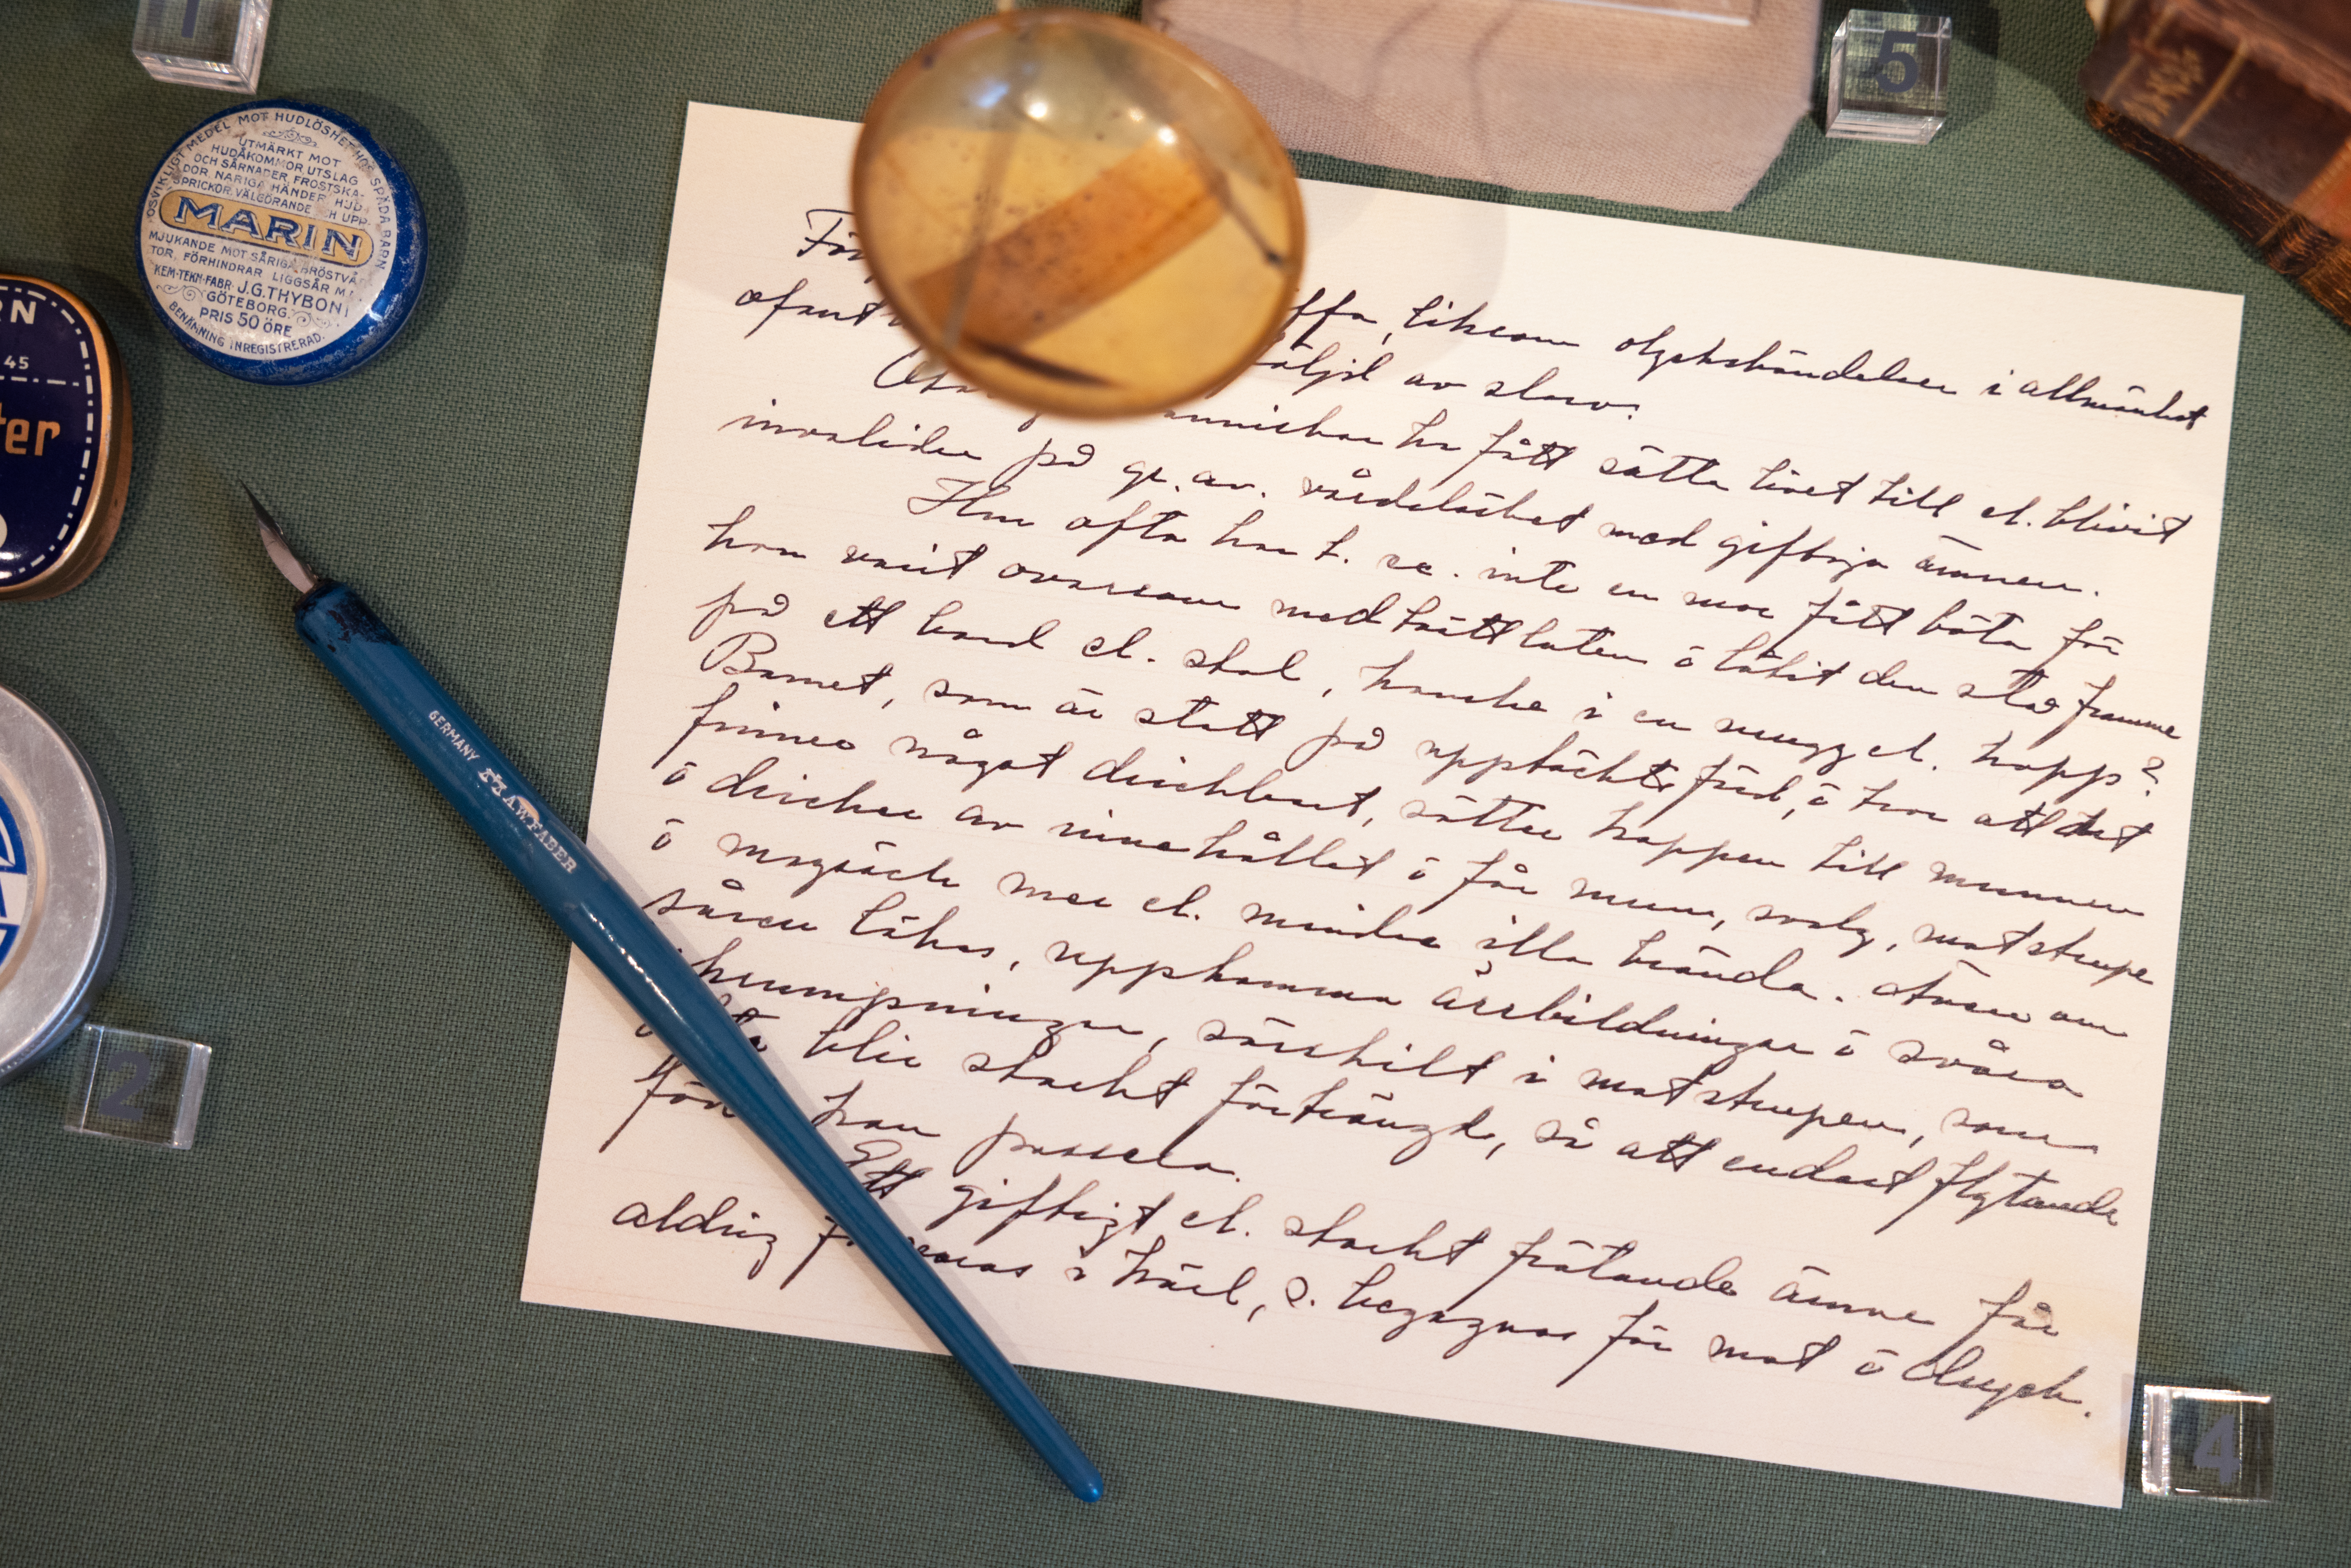 1
5
OSVIKLIGT MEDEL MOT HUDLÖSHET HOS SPÄDA BARN
UTMÄRKT MOT
HUDÅKOMMOR, UTSLAG
OCH SÅRNADER, FROSTSKA-
DOR, NARIGA HÄNDER, HUD-
SPRICKOR. VÄLGÖRANDE
MARIN
MJUKANDE MOT SÅRIGA BRÖSTVÅR
TOR, FÖRHINDRAR LIGGSÅR M
KEM-TEKN-FABR. J.G. THYBON
GÖTEBORG.
PRIS 50 ÖRE
BENÄMNING INREGISTRERAD.
RN
45
ter
2
GERMANY A.W. FABER
För ffa, liksom olyckshändelser i allmänhet
ofant öljd av slarv.
nniskor ha fått sätta livet till el. blivit
invalider på gr. av. vårdslöshet med giftiga ämnen.
Hur ofta har t. ex. inte en mor fått böta för
hon varit ovarsam med tvättluten o låtit den stå framme
på ett bord el. stol, kanske i en mugg el. kopp?
Barnet, som är statt på upptäcktsfärd, o tror att det
finnes något drickbart, sätter koppen till munnen
o dricker av innehållet o får mun, svalg, matstrupe
o magsäck mer el. mindre illa brända. Även om
såren läkas, uppkomma ärrbildningar o svåra
krumpningar, särskilt i matstrupen, som
blir starkt förträngd, så att endast flytande
föd kan passera.
Ett giftigt el. starkt frätande ämne får
aldrig f varas i kärl, s. begagnas för mat o dryck.
4